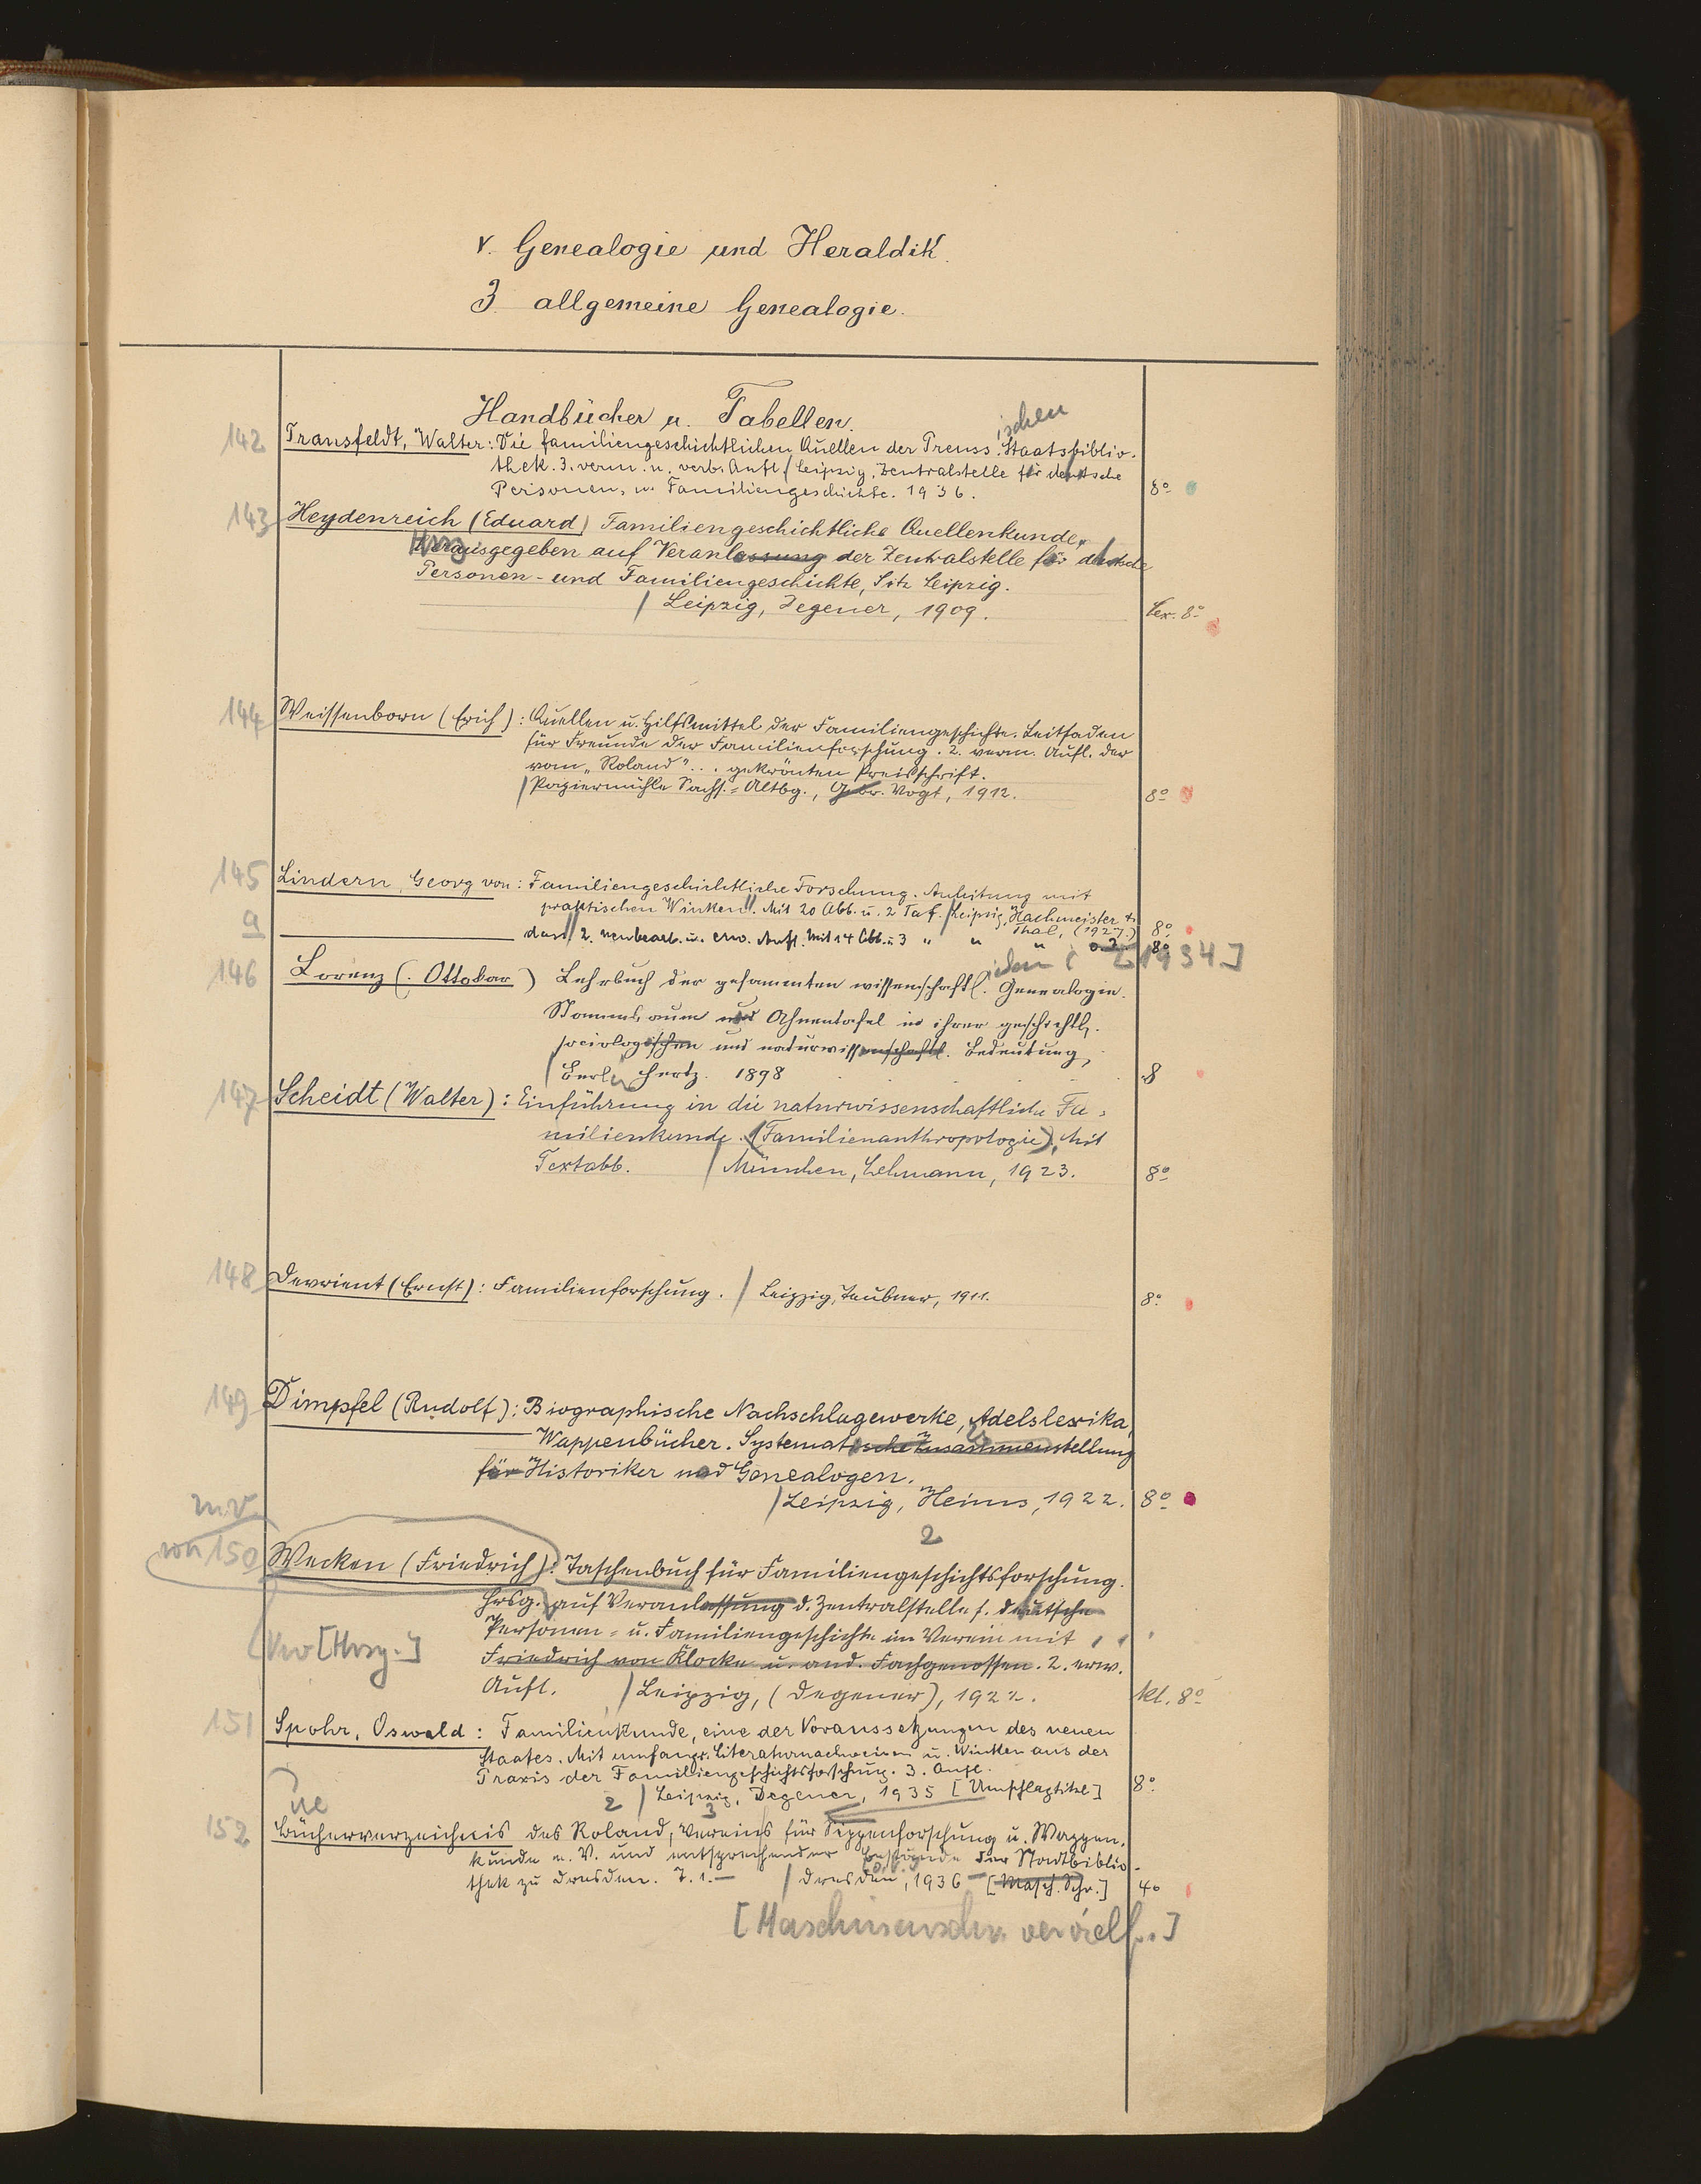 v. Genealogie und Heraldik.
3. allgemeine Genealogie.
Handbücher u. Tabellen.
ischen
142 Transfeldt, Walter: Die familiengeschichtlichen Quellen der Preuss. Staatsbiblio-
thek. 3. verm. u. verb. Aufl. / Leipzig, Zentralstelle für deutsche
Personen- u. Familiengeschichte. 1936. 8°
143 Heydenreich (Eduard) Familiengeschichtliche Quellenkunde,
Herausgegeben auf Veranlassung der Zentralstelle für deutsche
Personen- und Familiengeschichte, Sitz Leipzig.
/ Leipzig, Degener, 1909. Lex. 8°
144 Weissenborn (Erich): Quellen u. Hilfsmittel der Familiengeschichte. Leitfaden
für Freunde der Familienforschung. 2. verm. Aufl. der
vom „Roland"... gekrönten Preisschrift.
/ Papiermühle Sachs.-Altbg., Gebr. Vogt, 1912. 8°
145 Lindern, Georg von: Familiengeschichtliche Forschung. Anleitung mit
praktischen Winken. Mit 20 Abb. u. 2 Taf. / Leipzig, Hachmeister &
Thal, (1927.) 8°
a dass. 2. neubearb. u. erw. Aufl. Mit 14 Abb. u. 3 " " " o. J. 8°
[1934]
146 Lorenz (Ottokar) Lehrbuch der gesammten wissenschaftl. Genealogie.
Stammbaum und Ahnentafel in ihrer geschichtl.
sociologischen und naturwissenschaftl. Bedeutung,
/ Berlin Hertz. 1898 8
147 Scheidt (Walter): Einführung in die naturwissenschaftliche Fa-
milienkunde. (Familienanthropologie). Mit
Textabb. / München, Lehmann, 1923. 8°
148 Devrient (Ernst): Familienforschung. / Leipzig, Teubner, 1911. 8°
149 Dimpfel (Rudolf): Biographische Nachschlagewerke, Adelslexika,
Wappenbücher. Systematische Zusammenstellung
für Historiker und Genealogen.
/ Leipzig, Heims, 1922. 8°
2
150 Wecken (Friedrich): Taschenbuch für Familiengeschichtsforschung.
Hrsg. auf Veranlassung d. Zentralstelle f. deutsche
Personen- u. Familiengeschichte im Verein mit
[Hrsg.]
Friedrich von Klocke u. and. Fachgenossen. 2. erw.
Aufl. / Leipzig, (Degener), 1922. kl. 8°
151 Spohr, Oswald: Familienkunde, eine der Voraussetzungen des neuen
Staates. Mit umfangr. Literaturnachweisen u. Winken aus der
Praxis der Familiengeschichtsforschung. 3. Aufl.
/ Leipzig, Degener, 1935 [Umschlagtitel] 8°
2 3
152 Bücherverzeichnis des Roland, Vereins für Sippenforschung u. Wappen-
kunde e. V. und entsprechender Bestände der Stadtbiblio-
thek zu Dresden. T. 1.— / Dresden, 1936— [Masch. Schr.] 4°
[Maschinenschr. vervielf.]